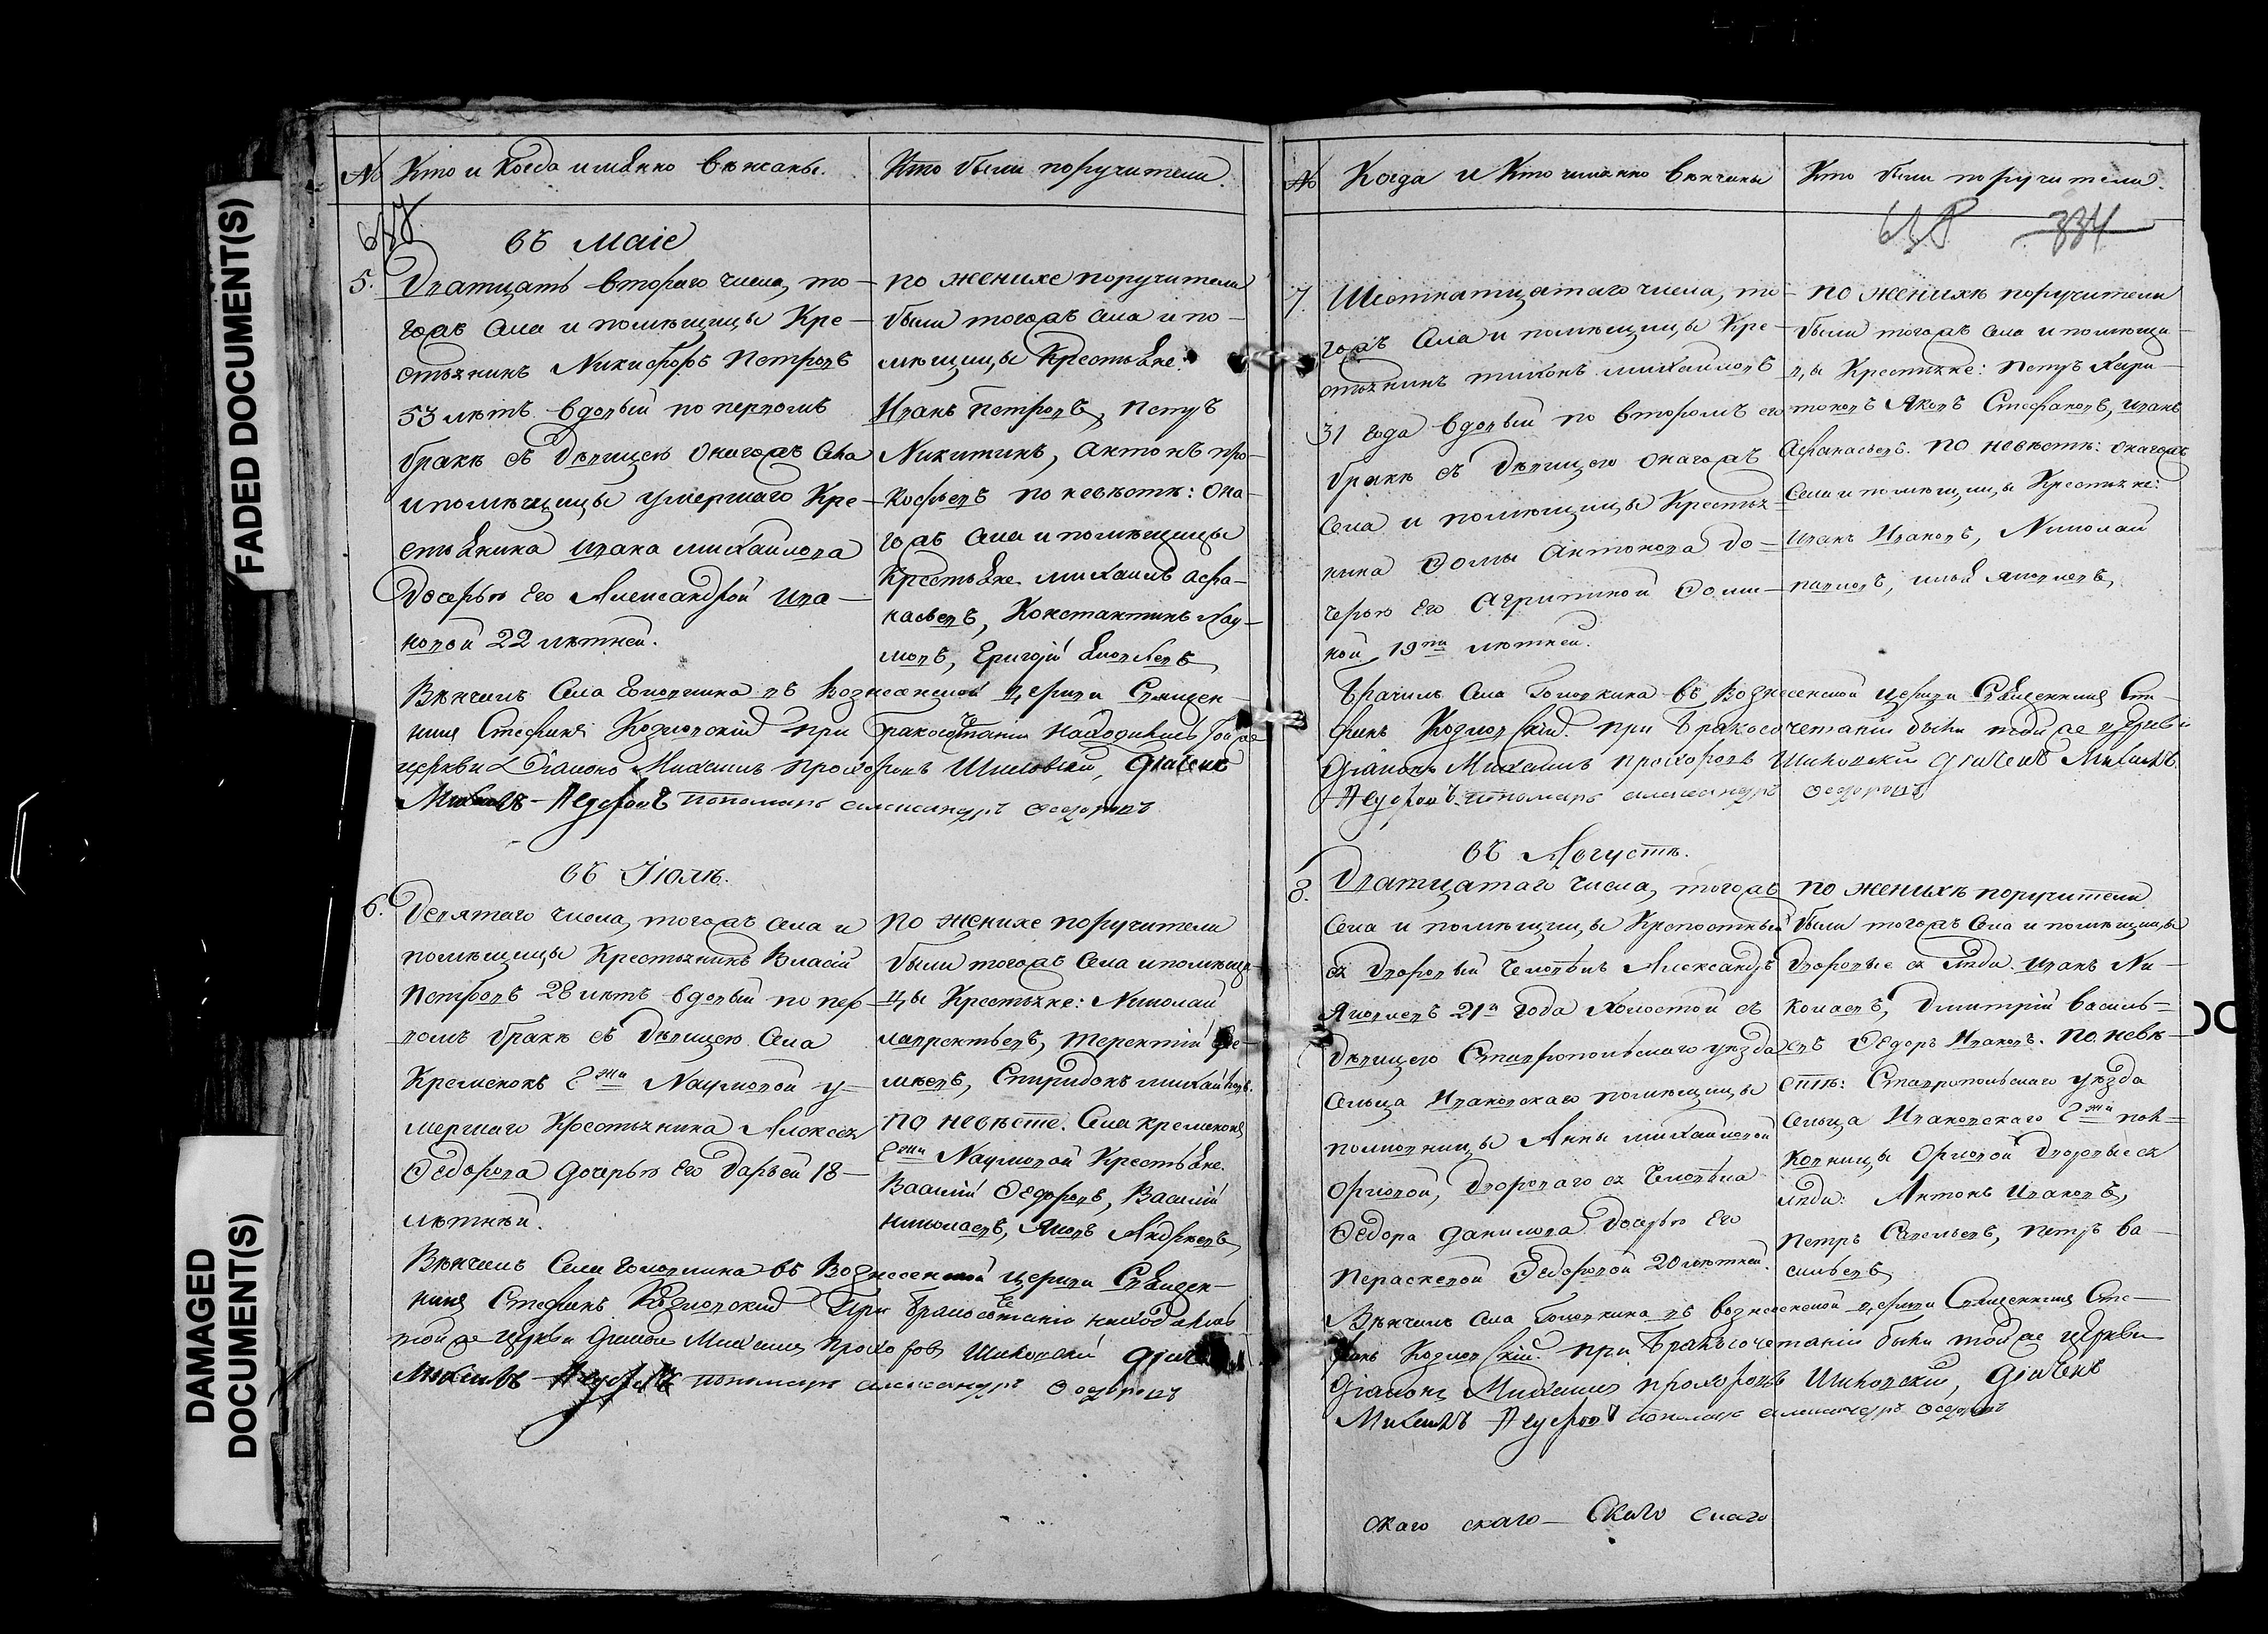 FADED DOCUMENT(S)
DAMAGED
DOCUMENT(S)
№ Кто и когда имянно венчаны.
Кто были поручители.
637.
въ Маіе
5. Дватцать втораго числа, то-
гожъ села и помѣщицы Кре-
стьянинъ Никифоръ Петровъ
53 лѣтъ вдовый по первомъ
бракѣ съ дѣвицею онагожъ села
и помѣщицы умершаго Кре-
стьянина Ивана Михайлова
дочерью Его Александрой Ива-
новой 22 лѣтней.
по женихе поручители
были тогожъ села и по-
мѣщицы Крестьяне:
Иванъ Петровъ, Петръ
Никитинъ, Антонъ Про-
кофьевъ по невѣстѣ: она-
гожъ села и помѣщицы
Крестьяне Михаилъ Афа-
насьевъ, Константинъ Нау-
мовъ, Григорій Яковлевъ
Вѣнчалъ Села въ Вознесенской церкви Священ-
никъ Стефанъ Козловскій при бракосочетаніи находились той же
церкви Діаконъ Михаилъ Прохоровъ Шиловскій, Дьячекъ
Михаилъ Пономарь Александръ Федоровъ
въ Іюлѣ.
6. Девятаго числа, тогожъ села и
помѣщицы Крестьянинъ Власій
Петровъ 28 лѣтъ вдовый по пер-
вомъ бракѣ съ дѣвицею Села
Кременокъ Гжи Наумовой у-
мершаго Крестьянина Алексея
Федорова дочерью Его Дарьей 18-
лѣтней.
по женихе поручители
были тогожъ Села и помѣщи-
цы Крестьяне: Николай
Лаврентьевъ, Терентій Ере-
мѣевъ, Спиридонъ Михайловъ.
по невѣсте. Села Кременокъ
Гжи Наумовой Крестьяне.
Василій Федоровъ, Василій
Николаевъ, Яковъ Андреевъ
Вѣнчалъ Села въ Вознесенской церкви Священ-
никъ Стефанъ Козловскій При бракосочетаніи находились
той же церкви Діаконъ Михаилъ Прохоровъ Шиловскій
Михаилъ Пономарь Александръ Федоровъ
№ Когда и Кто имянно венчаны
Кто были поручители.
638 334
7. Шестнатцатаго числа, то-
гожъ Села и помѣщицы Кре-
стьянинъ Тихонъ Михайловъ
31 года вдовый по второмъ его
бракѣ съ дѣвицею онагожъ
Села и помѣщицы Крестья-
нина Фомы Антонова до-
черью Его Агрипиной Фоми-
ной 19ти лѣтней.
по женихѣ поручители
были тогожъ села и помѣщи-
цы Крестьяне: Петръ Хари-
тоновъ Яковъ Стефановъ, Иванъ
Афанасьевъ. по невѣстѣ: онагожъ
Села и помѣщицы Крестьяне:
Иванъ Ивановъ, Николай
Павловъ, Илья Яковлевъ
Брачилъ Села въ Вознесенской церкви Священникъ Сте-
фанъ Козловскій. при бракосочетаніи были той же церкви
Діаконъ Михаилъ Прохоровъ Шиловскій Дьячекъ Михаилъ
Пономарь Александръ Федоровъ
въ Августѣ.
8. Дватцатаго числа, тогожъ
Села и помѣщицы Крепостный
ея дворовый человѣкъ Александръ
Яковлевъ 21го года холостой съ
дѣвицею Ставропольскаго уезда
Сельца Ивановскаго помѣщицы
полковницы Анны Михайловой
Орловой, двороваго ея человѣка
Федора Данилова дочерью Его
Перасковой Федоровой 20 лѣтней.
по женихѣ поручители
были тогожъ Села и помѣщицы
дворовые ея люди. Иванъ Ни-
колаевъ, Дмитрій Василь-
евъ Федоръ Ивановъ. по невѣ-
стѣ: Ставропольскаго уезда
Сельца Ивановскаго Гжи пол-
ковницы Орловой дворовые ея
люди: Антонъ Ивановъ,
Петръ Савельевъ, Петръ Ва-
сильевъ
Вѣнчалъ Села въ Вознесенской церкви Священникъ Сте-
фанъ Козловскій. при бракосочетаніи были той же церкви
Діаконъ Михаилъ Прохоровъ Шиловскій, Дьячекъ
Михаилъ Пономарь Александръ Федоровъ
скаго скаго - Скаго скаго